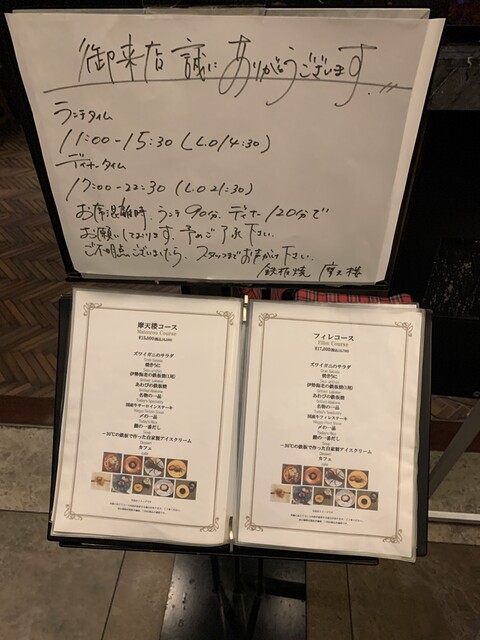 御来店誠にありがとうございます.
ランチタイム
11:00-15:30 (L.O 14:30)
ディナータイム
17:00-22:30 (L.O 21:30)
お席混雑時、ランチ90分、ディナー120分で
お願いしております。予めご了承下さい.
ご不明点ございましたら、スタッフまでお声がけ下さい.
鉄板焼 摩天楼
摩天楼コース
ズワイガニのサラダ
Crab Salada
焼きうに
伊勢海老の鉄板焼(1尾)
あわびの鉄板焼
名物の一品
国産牛サーロインステーキ
〆の一品
鯛の一番だし
-30℃の鉄板で作った自家製アイスクリーム
カフェ
フィレコース
Fillet Course
ズワイガニのサラダ
Crab Salada
焼きうに
伊勢海老の鉄板焼(1尾)
あわびの鉄板焼
名物の一品
国産牛フィレステーキ
〆の一品
鯛の一番だし
-30℃の鉄板で作った自家製アイスクリーム
カフェ